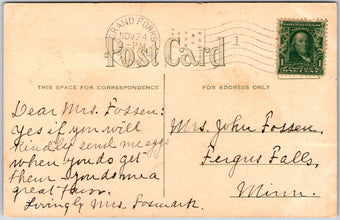 GRAND FORKS
NOV 24
-PM
1
Post Card
THIS SPACE FOR CORRESPONDENCE
FOR ADDRESS ONLY
Dear Mrs. Fossen:
Yes if you will
kindly send me eggs
when you do get
them you do me a
great favor.
Lovingly Mrs. Fosmark.
Mrs. John Fossen,
Fergus Falls,
Minn.